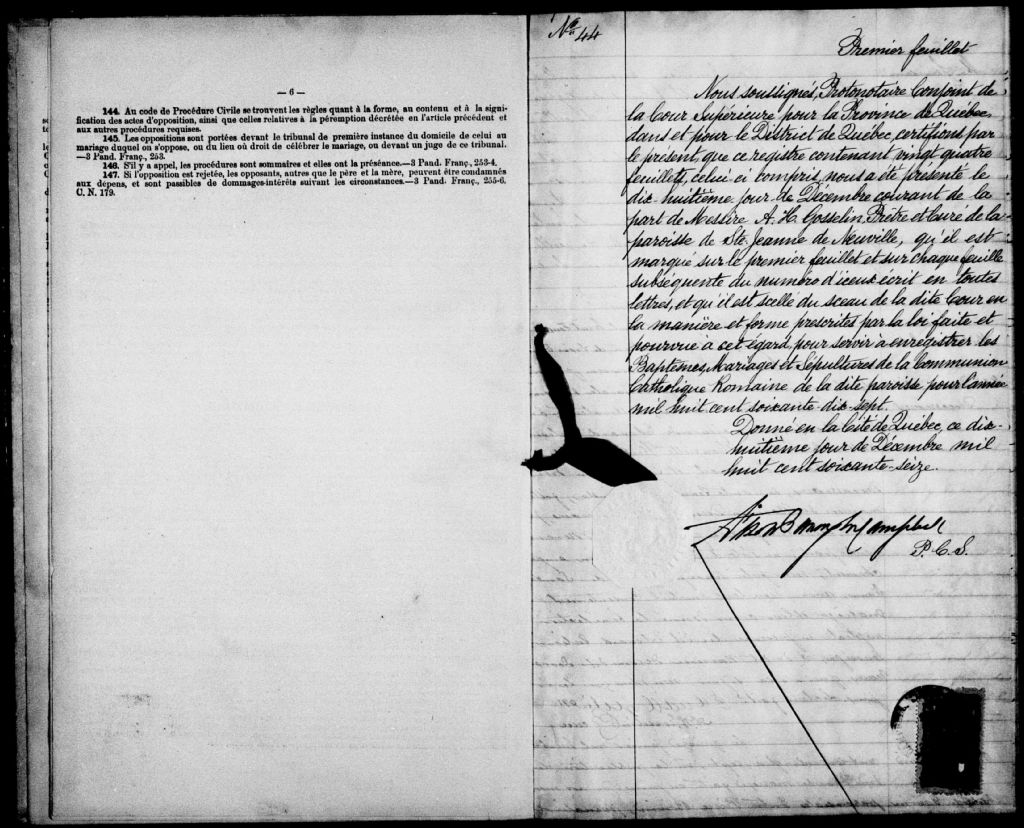 — 6 —
144. Au code de Procédure Civile se trouvent les règles quant à la forme, au contenu et à la signi-
fication des actes d'opposition, ainsi que celles relatives à la péremption décrétée en l'article précédent et
aux autres procédures requises.
145. Les oppositions sont portées devant le tribunal de première instance du domicile de celui au
mariage duquel on s'oppose, ou du lieu où droit de célébrer le mariage, ou devant un juge de ce tribunal.
—3 Pand. Franç., 253.
146. S'il y a appel, les procédures sont sommaires et elles ont la préséance.—3 Pand. Franç., 253-4.
147. Si l'opposition est rejetée, les opposants, autres que le père et la mère, peuvent être condamnés
aux dépens, et sont passibles de dommages-intérêts suivant les circonstances.—3 Pand. Franç., 255-6.
C. N. 179.
No 44
Premier feuillet
Nous soussignés, Protonotaire Conjoint de
la Cour Supérieure pour la Province de Québec,
dans et pour le District de Québec certifions par
le présent, que ce registre contenant vingt quatre
feuillets, celui-ci compris, nous a été présenté le
dix-huitième jour de Décembre courant de la
part de Messire A. H. Gosselin, Prêtre et Curé de la
paroisse de Ste. Jeanne de Neuville, qu'il est
marqué sur le premier feuillet et sur chaque feuille
subséquente du numéro d'iceux écrit en toutes
lettres, et qu'il est scellé du sceau de la dite Cour en
la manière et forme prescrites par la loi faite et
pourvue à cet égard, pour servir à enregistrer les
Baptêmes, Mariages et Sépultures de la Communion
Catholique Romaine de la dite paroisse pour l'année
mil huit cent soixante-dix-sept.
Donné en la Cité de Québec, ce dix-
huitième jour de Décembre mil
huit cent soixante-seize.
Campbell
P. C. S.